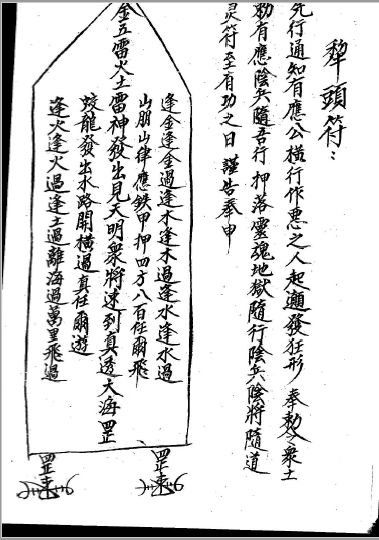 犂頭符：
死行通知有應公橫行作悪之人起遊發狂形奉勅令衆士
勅有應陰兵隨吾行押落靈魂地獄隨行陰兵陰將隨道
灵符至有功之日謹告奉申
逢金逢金過逢木逢木過逢水逢水過
山朋山律應鉄甲押四方八百任爾飛
金五雷火土雷神發出見天明衆將速到真透大海罡
蛟龍發出水路開橫過真任爾遊
逢火逢火過逢土過離海過萬里飛過
罡速
罡速